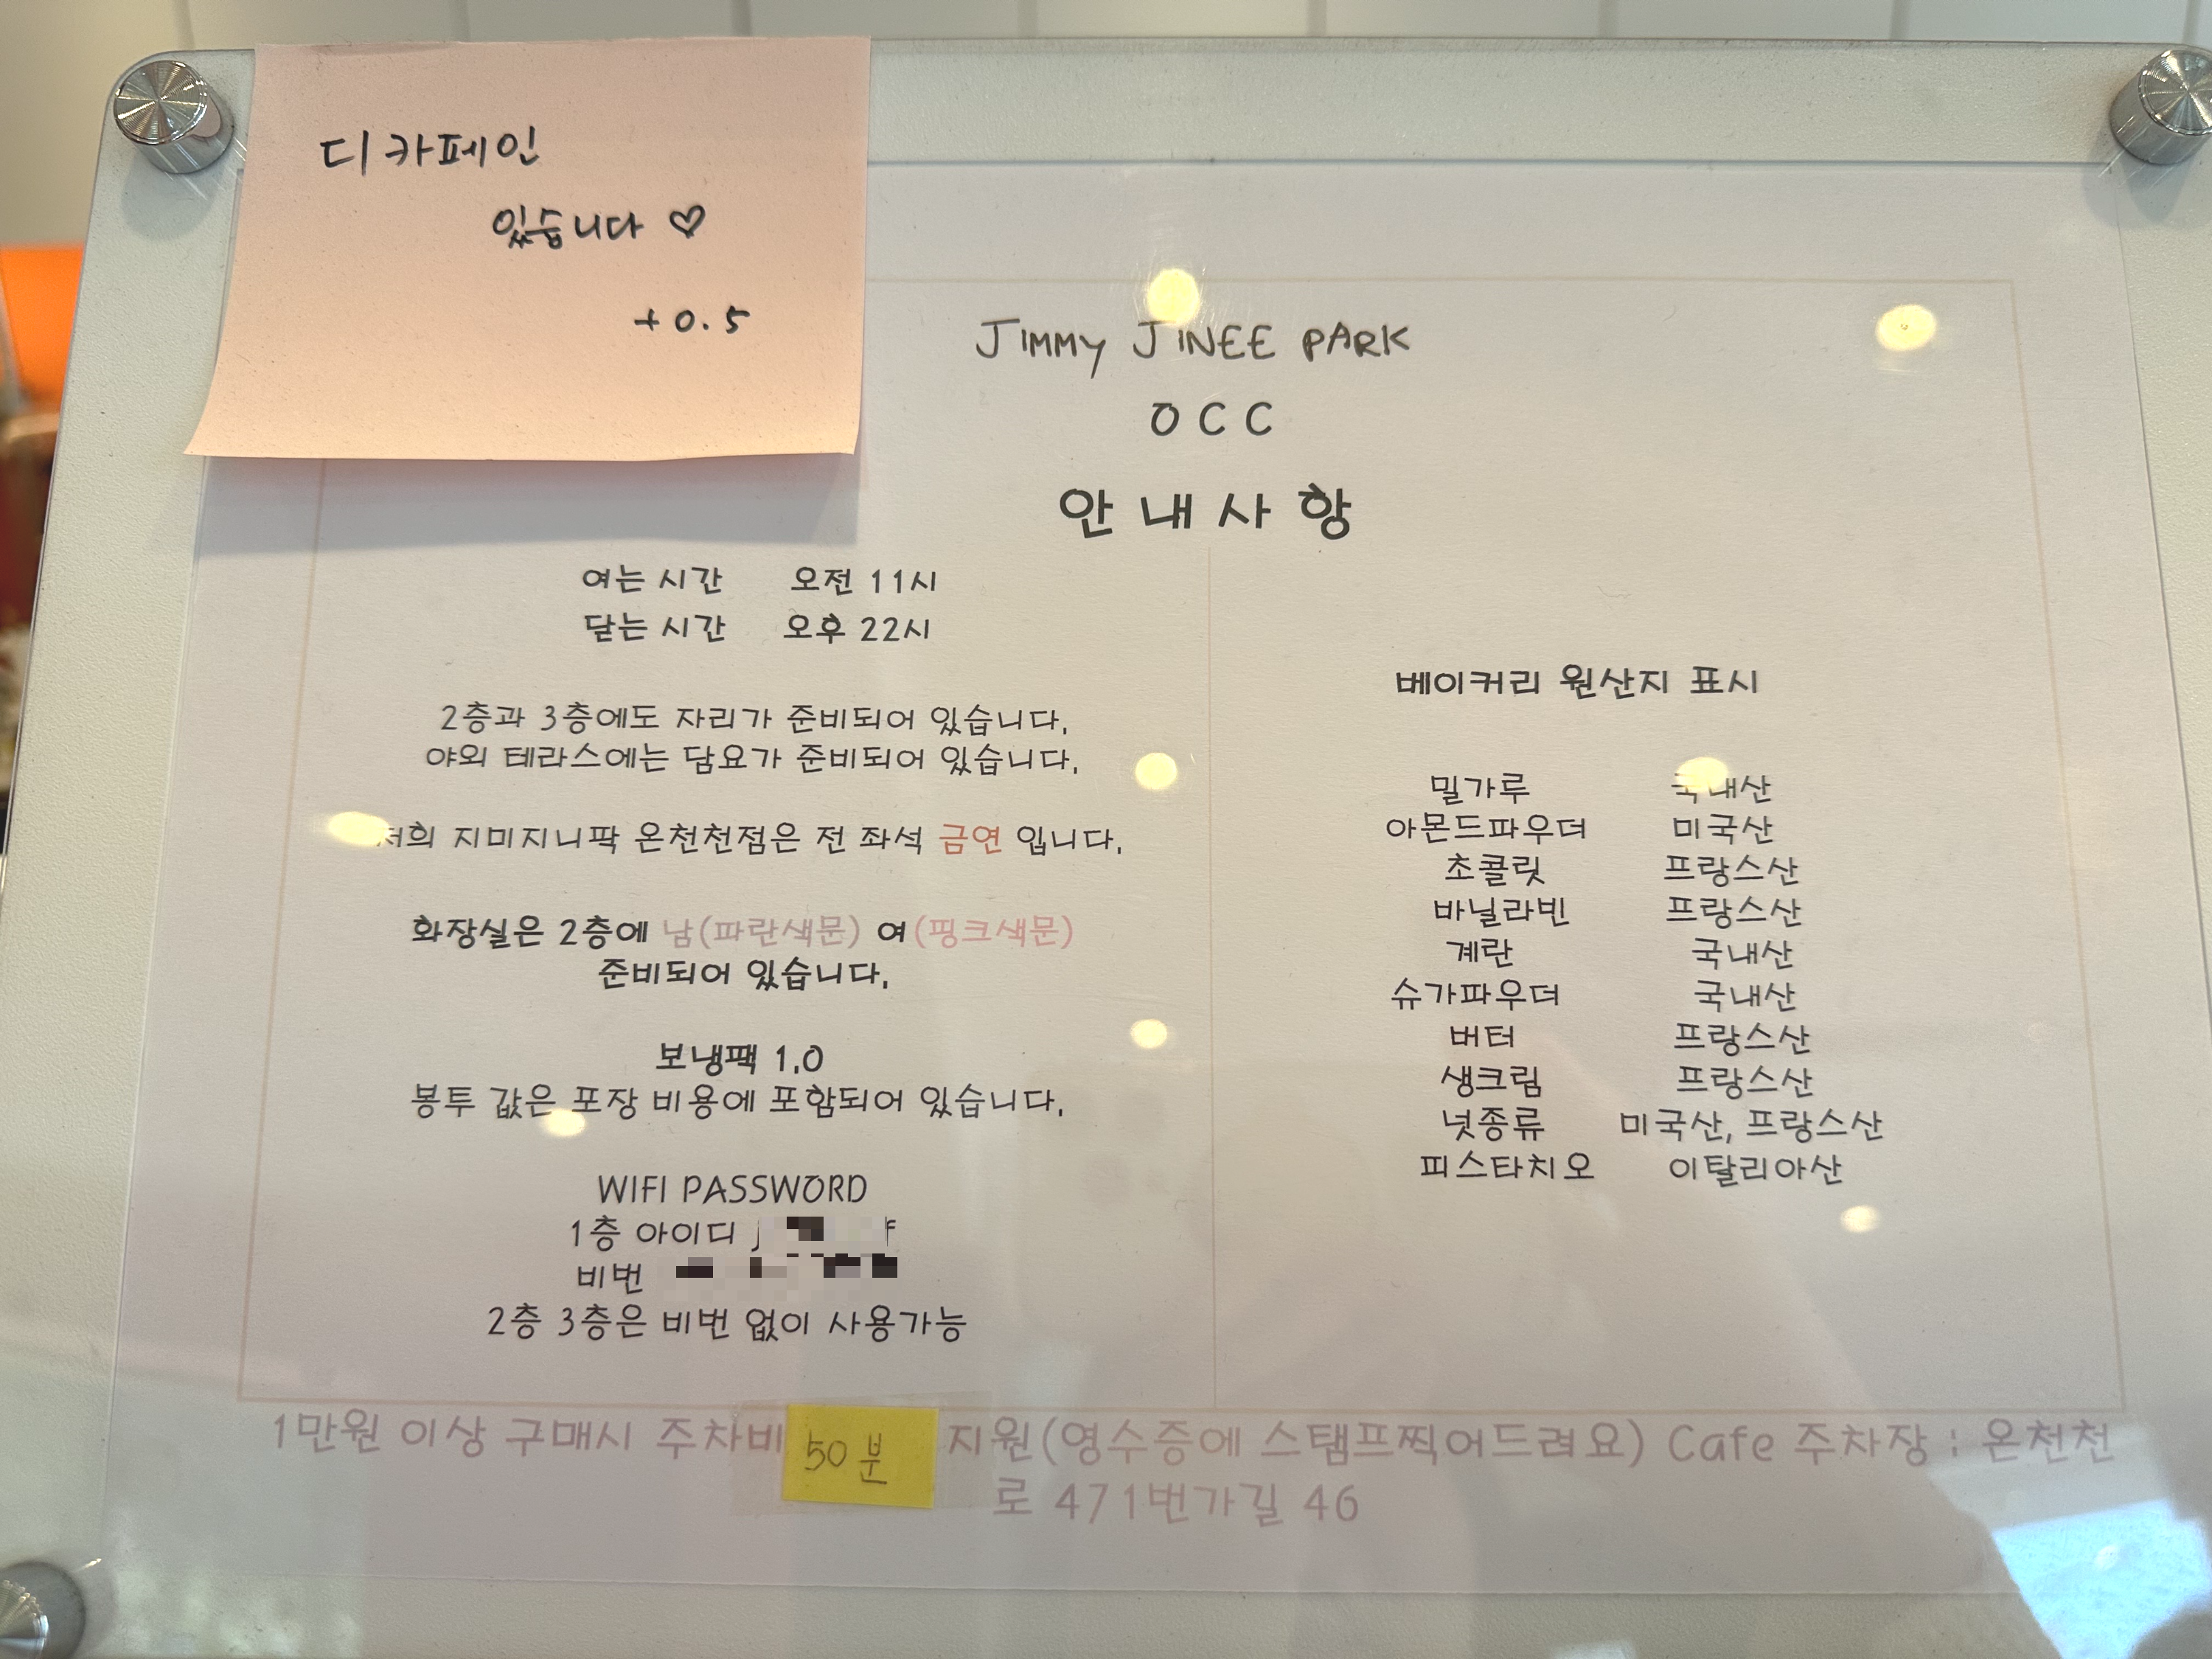 디카페인
있습니다 ♡
+0.5
JIMMY JINEE PARK
OCC
안내사항
여는 시간 오전 11시
닫는 시간 오후 22시
2층과 3층에도 자리가 준비되어 있습니다.
야외 테라스에는 담요가 준비되어 있습니다.
저희 지미지니팍 온천천점은 전 좌석 금연 입니다.
화장실은 2층에 남(파란색문) 여(핑크색문)
준비되어 있습니다.
보냉팩 1.0
봉투 값은 포장 비용에 포함되어 있습니다.
WIFI PASSWORD
1층 아이디
비번
2층 3층은 비번 없이 사용가능
베이커리 원산지 표시
밀가루 국내산
아몬드파우더 미국산
초콜릿 프랑스산
바닐라빈 프랑스산
계란 국내산
슈가파우더 국내산
버터 프랑스산
생크림 프랑스산
넛종류 미국산, 프랑스산
피스타치오 이탈리아산
1만원 이상 구매시 주차비 50분 지원(영수증에 스탬프찍어드려요) Cafe 주차장 : 온천천
로 471번가길 46